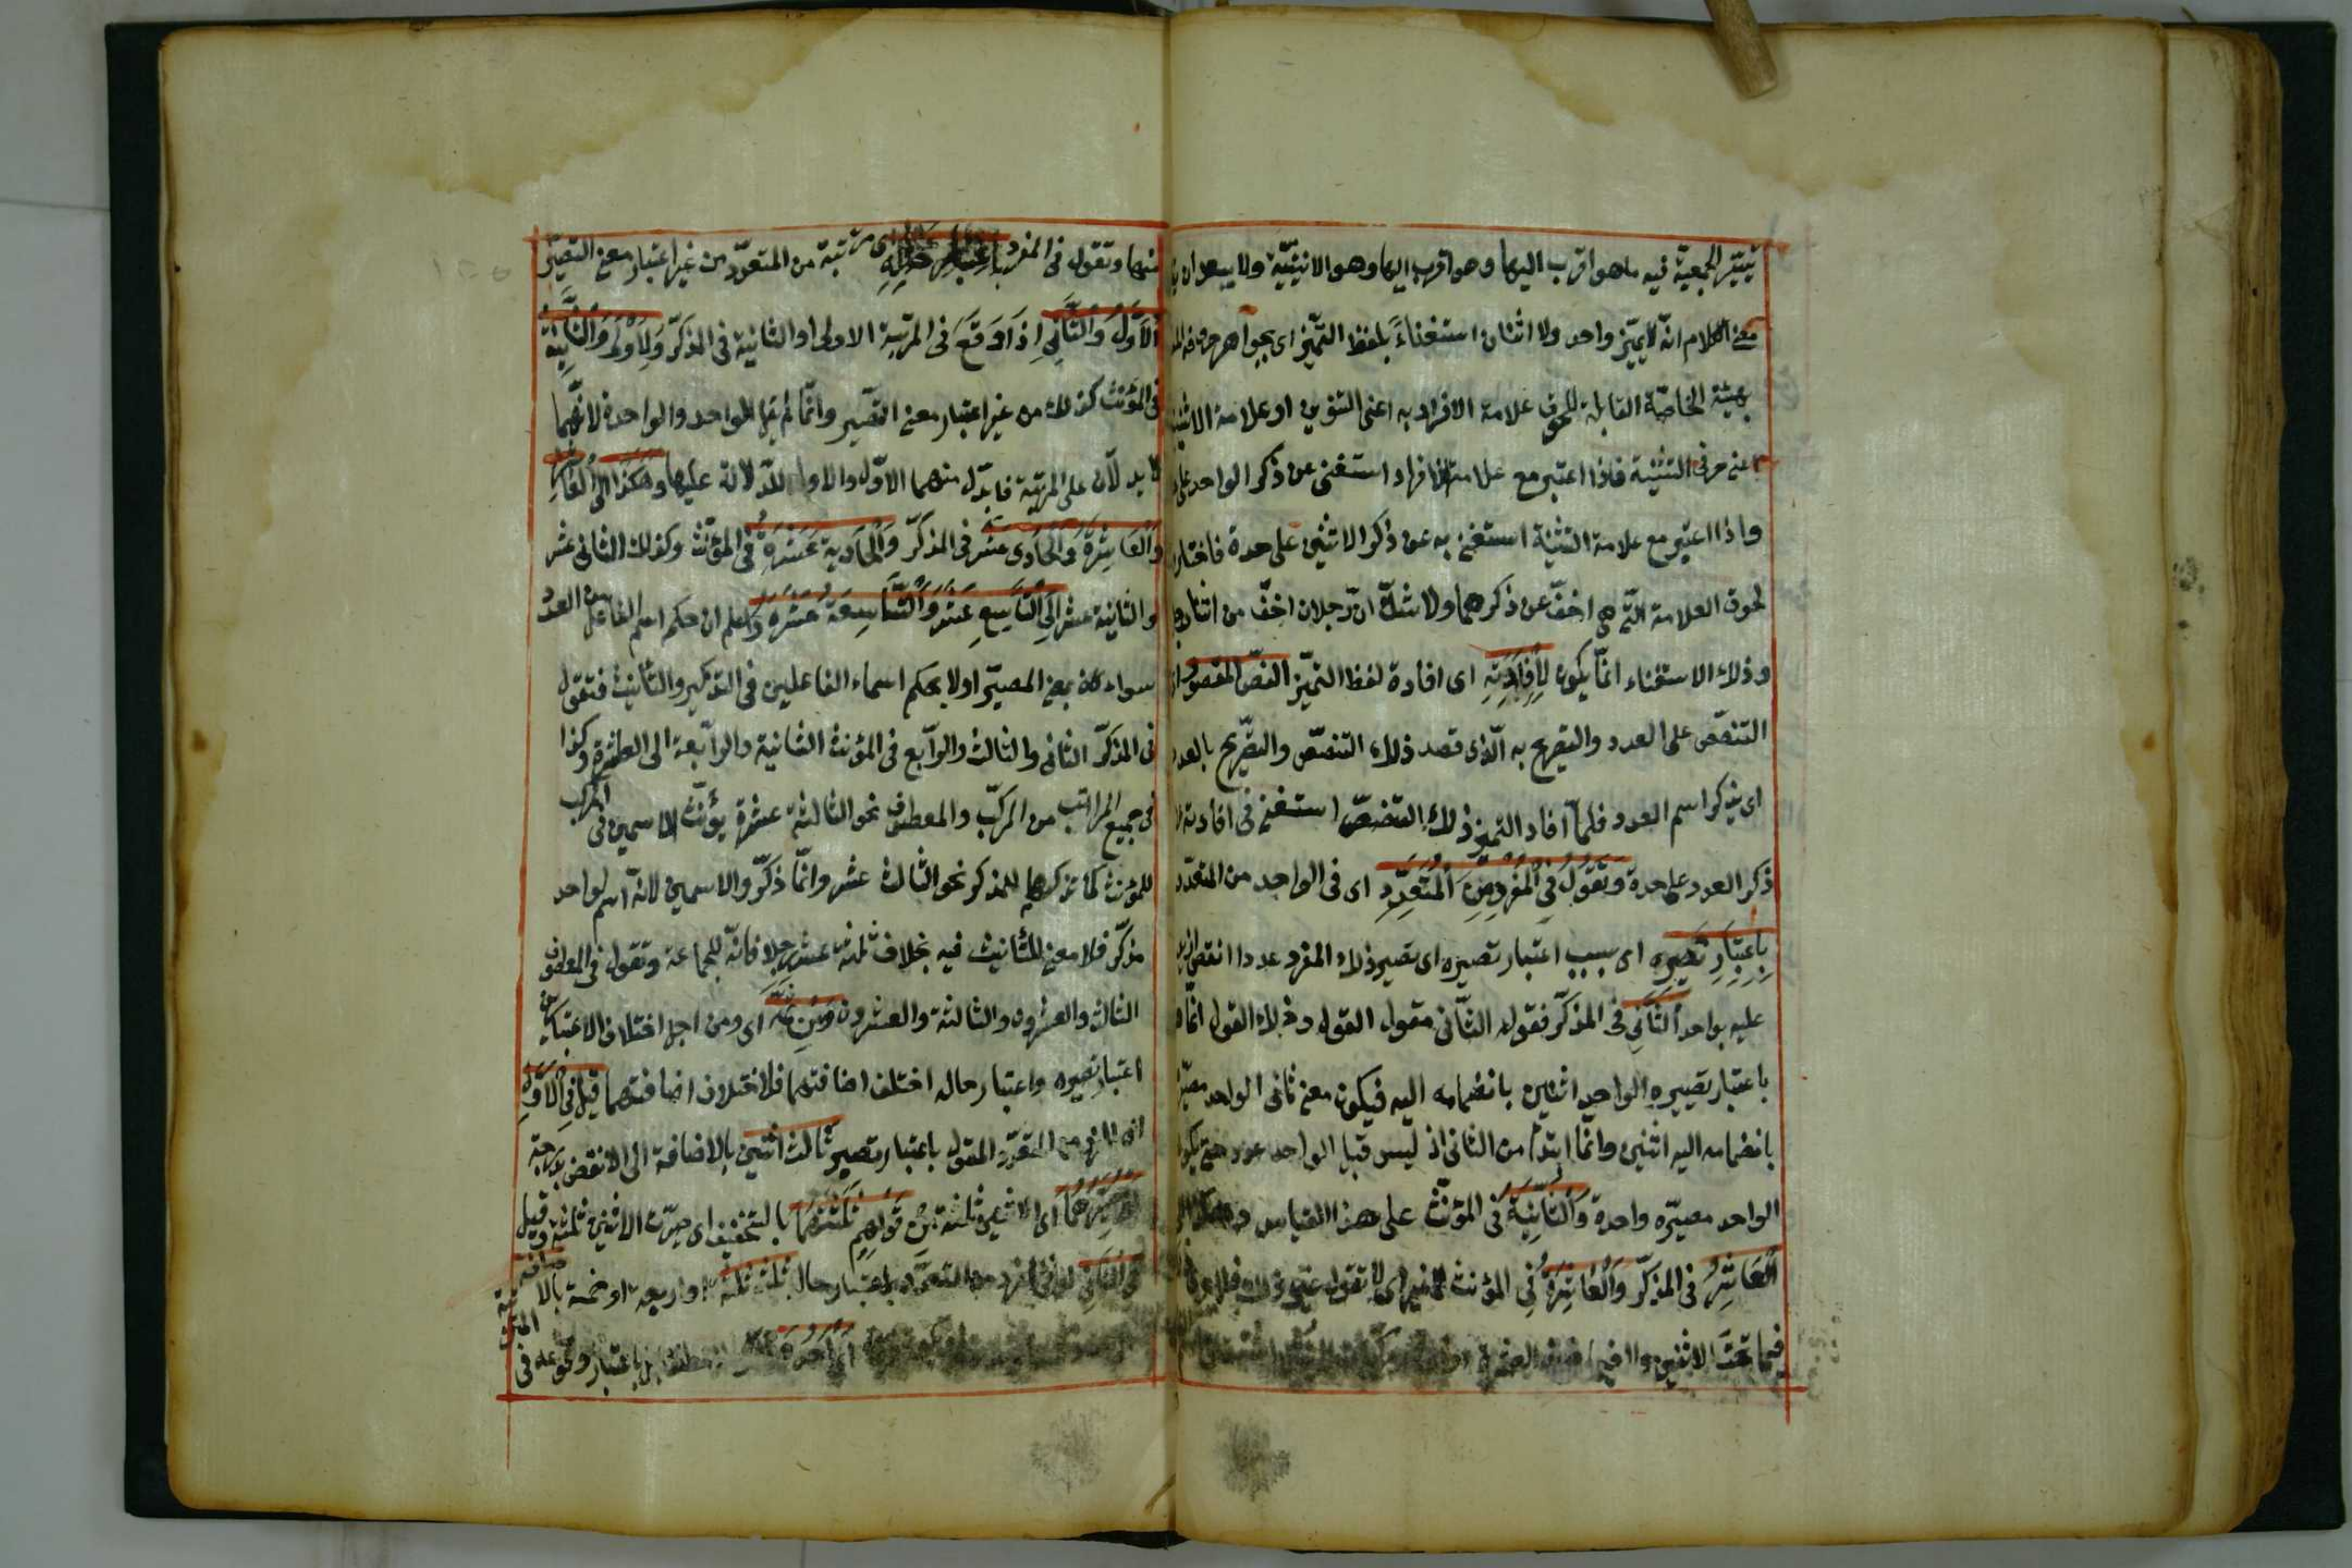 تيسّر الجمعية فيه ما هو اقرب اليها وهو اقرب اليها وهو الاثنينيّة ولا يبعد ان
معنى الكلام انّه لا يميّز واحد ولا اثنان استغناءً بلفظ التميّز اى بجواهر حروفه
بهيئة الخاصّة القابلة للحوق علامة الافراد به اعنى التنوين او علامة الاثنينية
اعنى حرفى التثنية فاذا اعتبر مع علامة الافراد استغنى عن ذكر الواحد على
واذا اعتبر مع علامة التثنية استغنى به عن ذكر الاثنين على حدة فاختار
لحوق العلامة التى هى اخفّ عن ذكرهما ولا شكّ انّ رجلان اخفّ من اثنا رجل
وذلك الاستغناء انّما يكون لِاِفادَتِهِ اى افادة لفظ التميّز النصّ المقصود
التنصّص على العدد والتصريح به الّذى قصد ذلك التنصّص والتصّريح بالعدد
اى بذكر اسم العدد فلمّا افاد التميز ذلك التنصّص استغنى فى افادته
ذكر العدد علىحدة وَتَقُولُ فِى المُفْرَدِ مِنَ المُتَعَدِّدِ اى فى الواحد من المتعدّد
بِاِعْتِبَارِ تَصْيِيرِه اى بسبب اعتبار تصييره اى تصيير ذلك المفرد عددا انقص
عليه بواحد الثَّانِى فى المذكّر فقوله الثّانى مقول القول وذلك القول انّما
باعتبار تصييره الواحد اثنين بانضمامه اليه فيكون معنى ثانى الواحد مصيّر
بانضمامه اليه اثنين وانّما ابتدأ من الثانى اذ ليس قبل الواحد عدد حتى يكون
الواحد مصيّره واحدة وَالثَّانِيَةُ فى المؤنّث على هذا القياس
العَاشِرُ فى المذكّر وَالعَاشِرَةُ فِى المؤنث لا غير اى لا تقول غير ذلك
فيما تحت الاثنين ولا فيما فوق العشرة
منها وتقول فى المفرد باعتبار حاله اى مرتبته من المتعدّد من غير اعتبار معنى التصيير
الاَوَّلُ وَالثَّانِى اِذَا وَقَعَ فى المرتبة الاولى او الثانية فى المذكّر وَالاُولَى وَالثَّانِيَةُ
فى المؤنث كذلك من غير اعتبار معنى التصيير وانّما لم يقل الواحد والواحدة لانّهما
لا يدلّان على المرتبة فابدّل منهما الاوّل والاولى للدّلالة عليها وَهَكَذَا الى العَاشِرِ
وَالعَاشِرَةُ وَالحَادى عشر فى المذكّر وَالحَادِيَة عَشَرَة فى المؤنّث وكذلك الثانى عشر
والثانية عشر الى التَّاسِعِ عَشَرَ وَالتَّاسِعَة عَشَرَةَ واعلم ان حكم اسم الفاعل من العدد
سواء كان بمعنى المصيّر او لا بحكم اسماء الفاعلين فى التذكير والتأنيث فتقول
فى المذكّر الثانى والثالث والرّابع فى المؤنث الثانية والرّابعة الى العاشرة وكذا
فى جميع المراتب من المركّب والمعطوف نحو الثالثة عشرة يؤنّث الاسمين فى المركّب
للمؤنث كما تذكرهما للمذكر نحو الثالث عشر وانّما ذكّروا الاسمين لانّه اسم لواحد
مذكّر فلا معنى للتأنيث فيه بخلاف ثلثة عشر رجلا فانّه للجماعة وتقول فى المعطوف
الثالث والعشرون والثالثة والعشرون وَمِن ثمّه اى ومن اجل اختلاف الاعتبارين
اعتبار تصييره واعتبار حاله اختلف اضافتهما فلاختلاف اضافتهما قيل فى الاَوَّلِ
المتعدّد المقول باعتبار تصييره ثالث اثنين بالاضافة الى الانقص بدرجة
اى مصيّرهما اى الاثنين ثلثة مِن قَولِهِم ثَلَثْتُهُما بالتخفيف اى صيّرت الاثنين ثلثة وقيل
فى الثانى من المتعدّد باعتبار حاله ثالث ثلثة او اربعة او خمسة بالاضافة
اى احدها باعتبار وقوعه فى